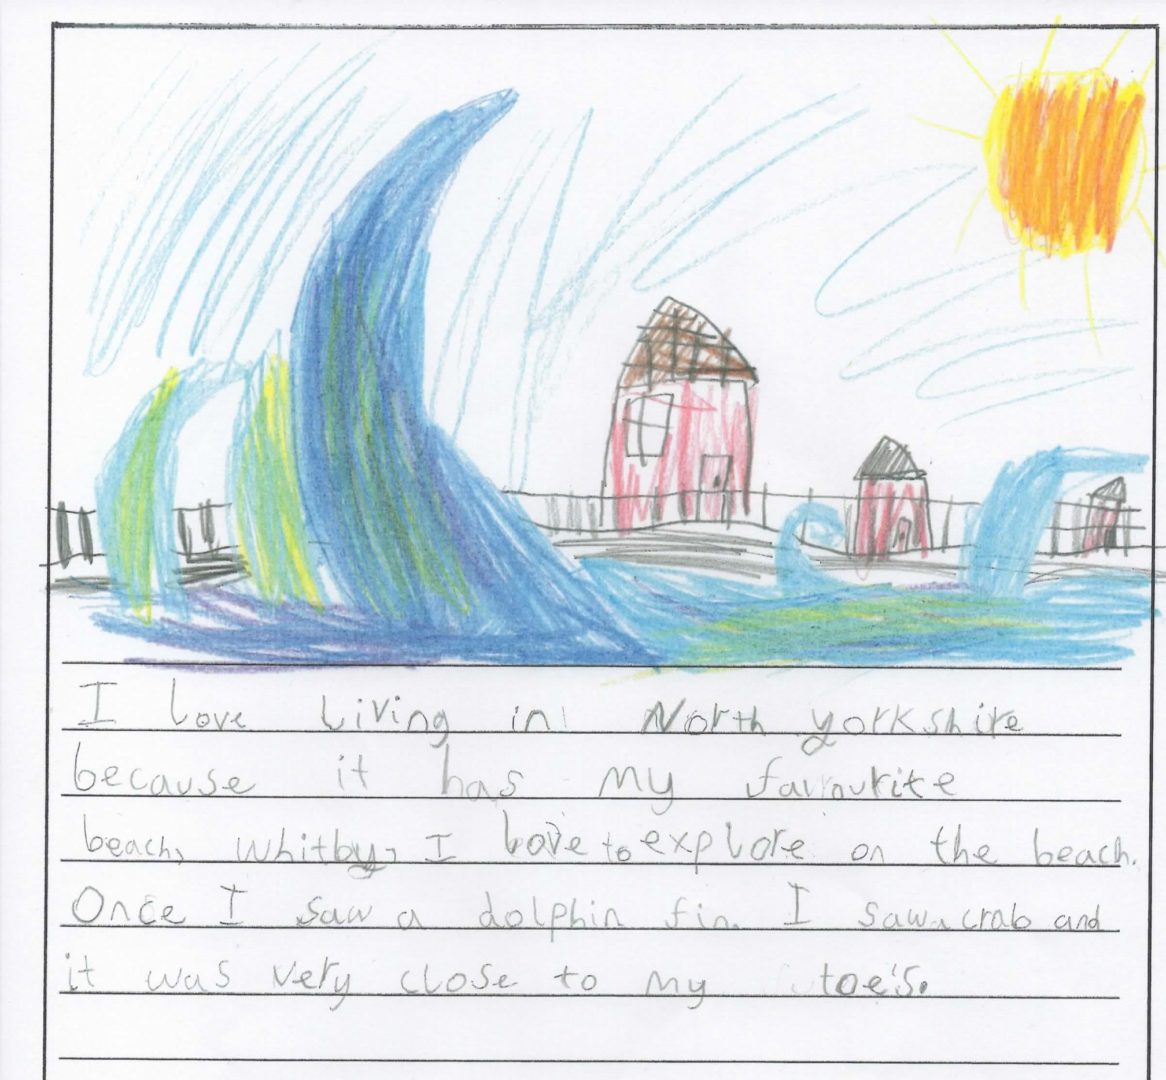 I love Living in North yorkshire
because it has my favourite
beach, whitby, I love to explore on the beach.
Once I saw a dolphin fin. I saw a crab and
it was very close to my toe's.